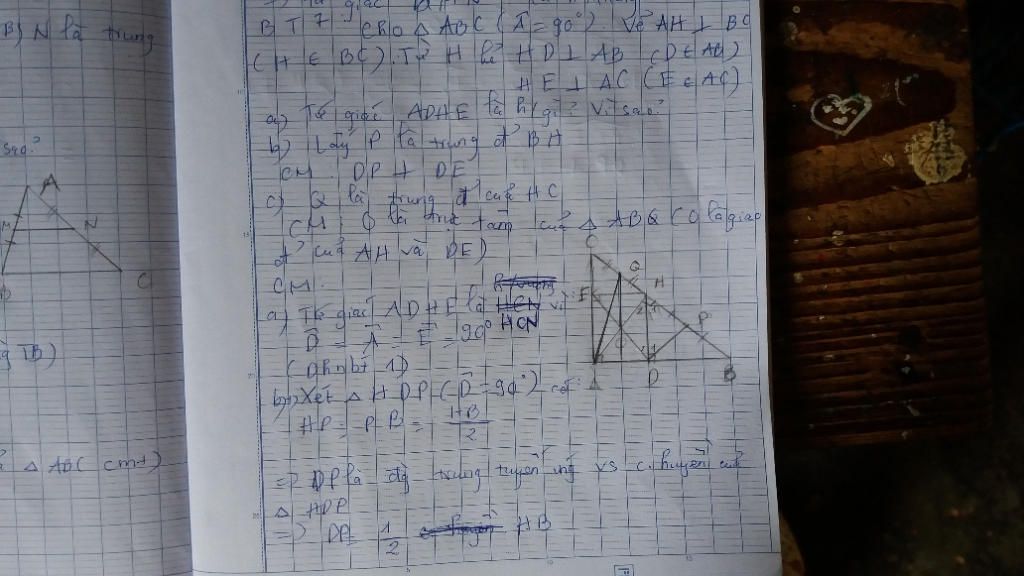 B) N là trung
sao?
A
M
N
C
B
g TB)
Δ ABC (cmt)
BT7 Cho Δ ABC (Â = 90°) Vẽ AH ⊥ BC
(H ∈ BC). Từ H kẻ HD ⊥ AB (D ∈ AB)
HE ⊥ AC (E ∈ AC)
a) Tứ giác ADHE là h gì? Vì sao?
b) Lấy P là trung đ' BH
CM: DP ⊥ DE
c) Q là trung đ' của HC
CM: Q là trực tâm của Δ ABQ (O là giao
đ' của AH và DE)
CM:
a) Tứ giác ADHE là HCN vì:
D̂ = Â = Ê = 90°
(dhnbt 1)
b) Xét Δ HDP (D̂ = 90°) có:
HP = PB = HB/2
=> DP là đg trung tuyến ứng vs c. huyền của
Δ HDP
=> DP = 1/2 HB
C
Q
E
H
P
A
D
B